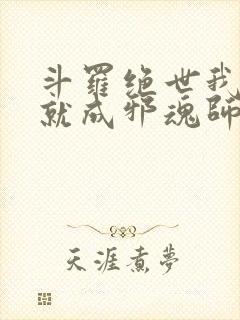 斗羅绝世我
就成邪魂師
天涯煮夢